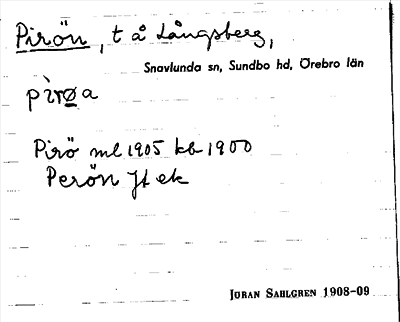 Pirön, t å Långsberg,
Snavlunda sn, Sundbo hd, Örebro län
pìrø̲a
Pirö ml 1905 kb 1900
Perön Jt ek
JÖRAN SAHLGREN 1908-09